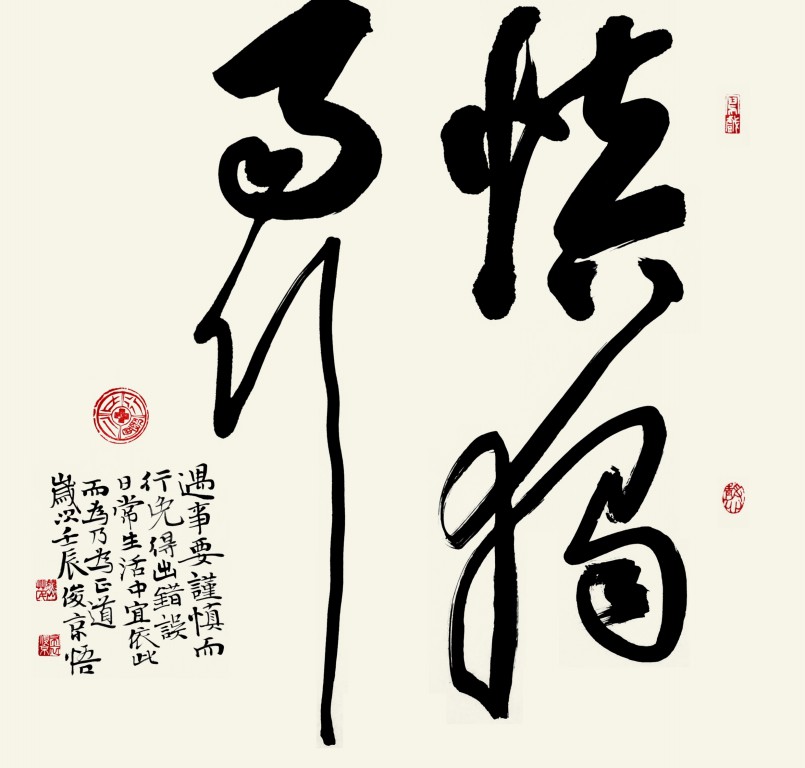 慎獨
行
遇事要謹慎而
行免得出錯誤
日常生活中宜依此
而為乃為正道
歲次壬辰俊京悟